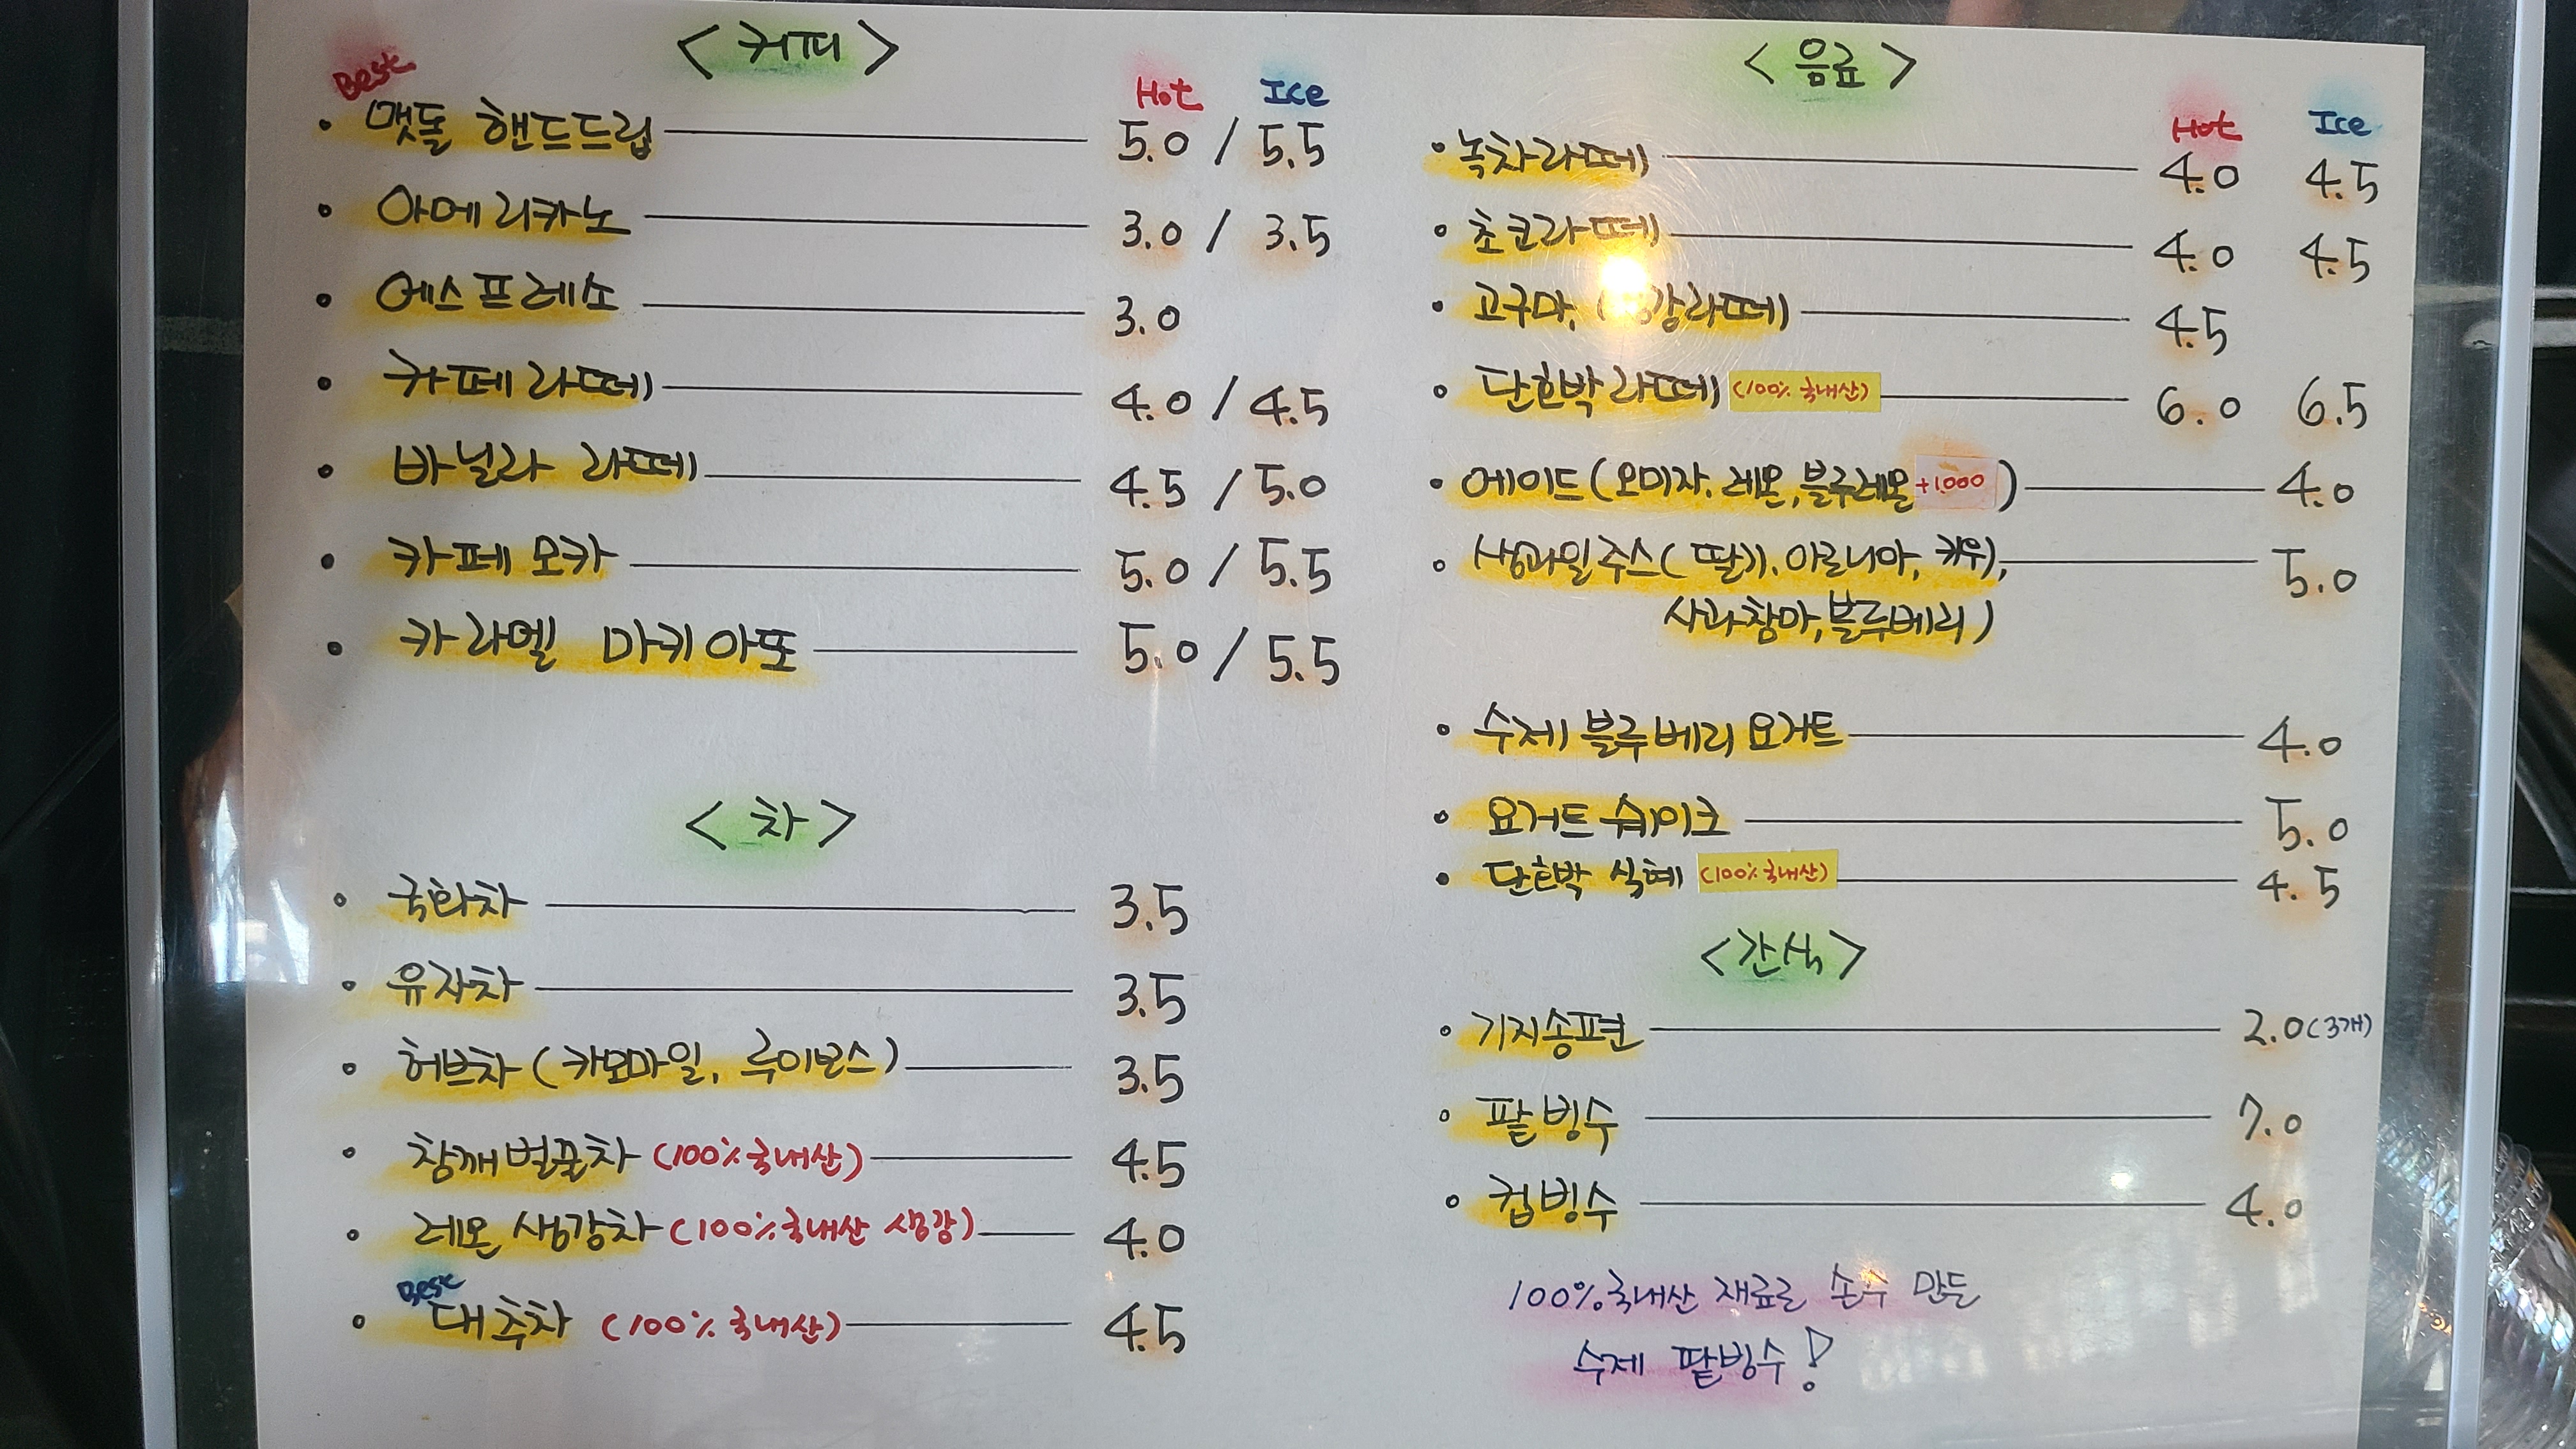 <커피>
Best
Hot Ice
• 맷돌 핸드드립 5.0 / 5.5
• 아메리카노 3.0 / 3.5
• 에스프레소 3.0
• 카페라떼 4.0 / 4.5
• 바닐라 라떼 4.5 / 5.0
• 카페모카 5.0 / 5.5
• 카라멜 마키아또 5.0 / 5.5
<차>
• 국화차 3.5
• 유자차 3.5
• 허브차 (카모마일, 루이보스) 3.5
• 참깨벌꿀차 (100% 국내산) 4.5
• 레몬 생강차 (100% 국내산 생강) 4.0
Best
• 대추차 (100% 국내산) 4.5
<음료>
Hot Ice
• 녹차라떼 4.0 4.5
• 초코라떼 4.0 4.5
• 고구마, ( 강라떼) 4.5
• 단호박라떼 (100% 국내산) 6.0 6.5
• 에이드(오미자, 레몬, 블루레몬 +1,000) 4.0
• 생과일주스(딸기, 아로니아, 키위), 5.0
사과참마, 블루베리)
• 수제 블루베리 요거트 4.0
• 요거트 쉐이크 5.0
• 단호박 식혜 (100% 국내산) 4.5
<간식>
• 기지송편 2.0 (3개)
• 팥빙수 7.0
• 컵빙수 4.0
100% 국내산 재료로 손수 만든
수제 팥빙수!